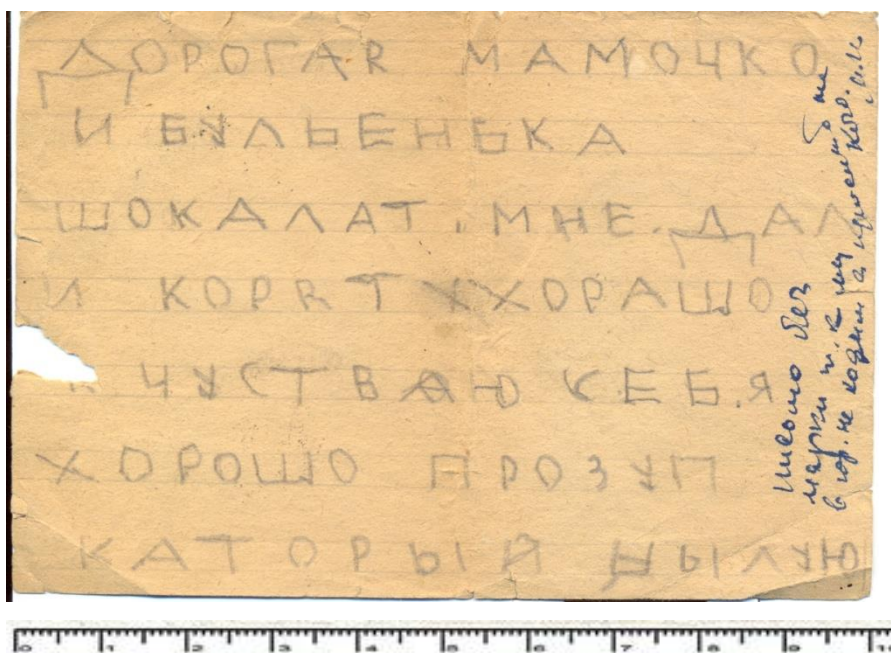 ДОРОГАЯ МАМОЧКО
И БУЛЬЕНЬКА
ШОКАЛАТ. МНЕ. ДАЛ
И КОРЯТ ХХОРАШО
ЧУСТВАЮ СЕБЯ
ХОРОШО ПРО ЗУП
КАТОРЫЙ ЦЫЛУЮ
письмо без
марки т.к мы
в гор. не ходим а
0 1 2 3 4 5 6 7 8 9 10 11